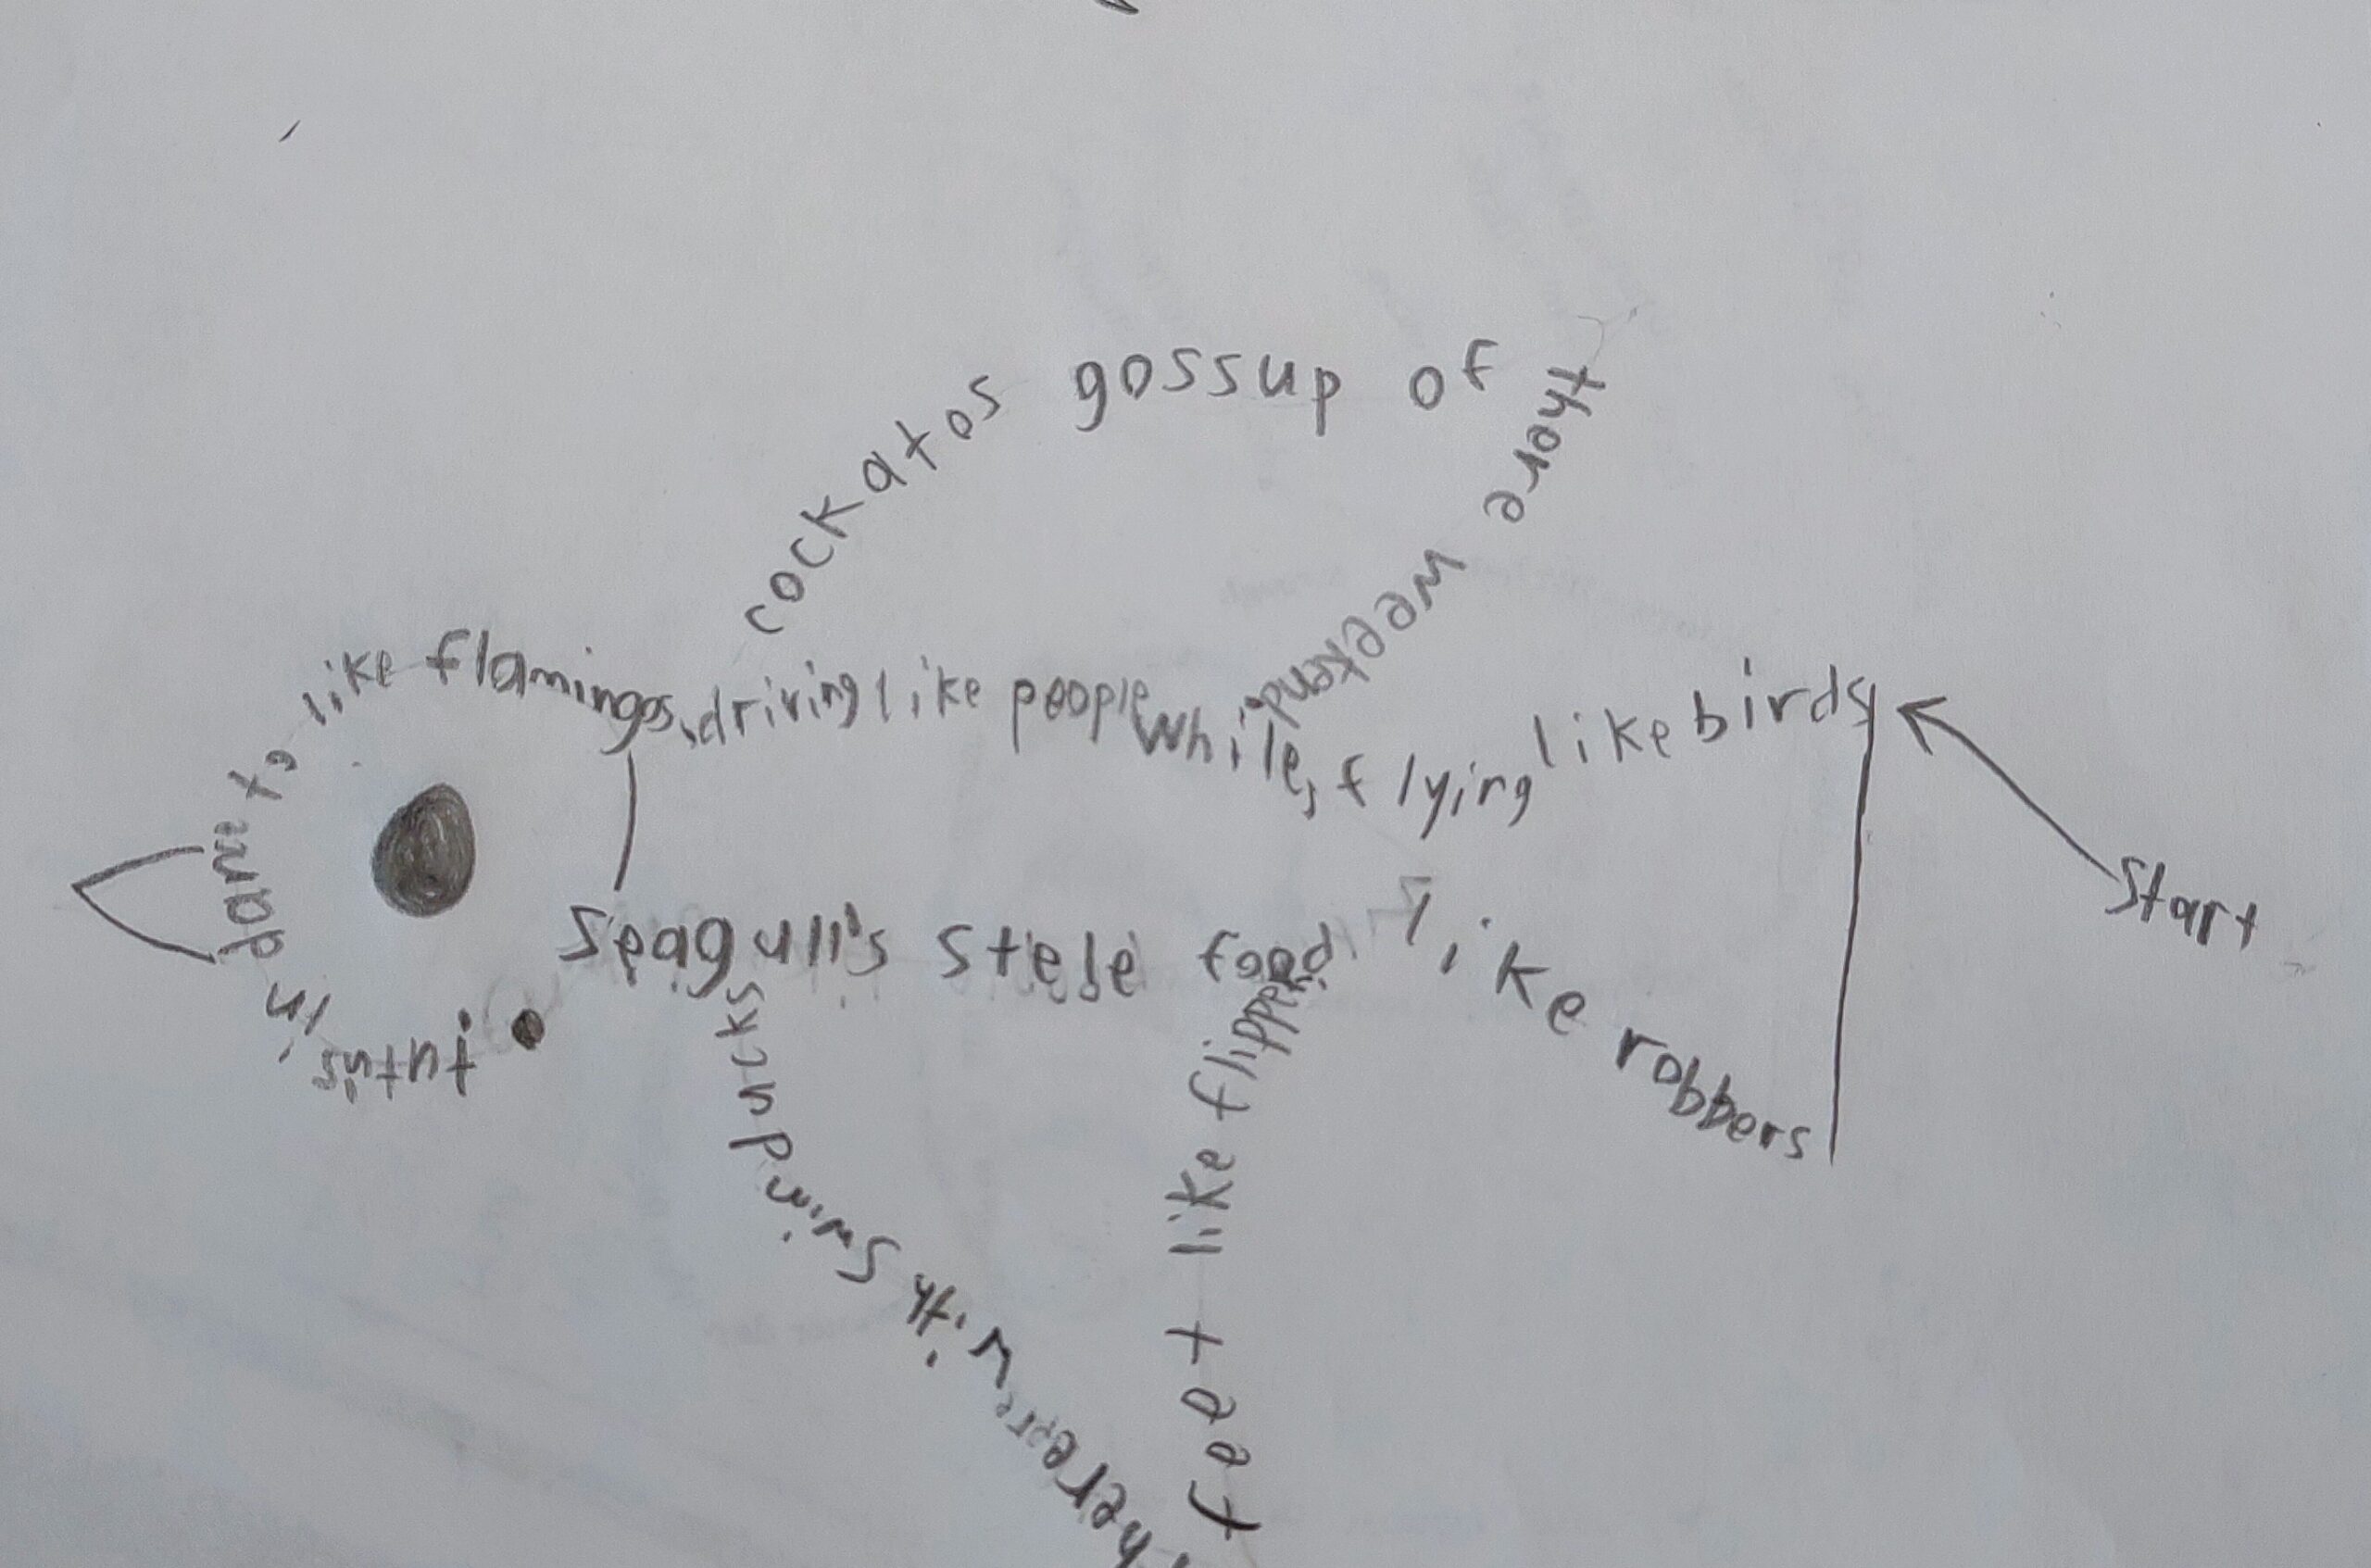 Start
flying like birds
while,
driving like people
cockatos gossup of
thore weekend.
to like flamingos.
Seagull's stele food
like robbers
ducks
Swim
with
there
feet like flippers.